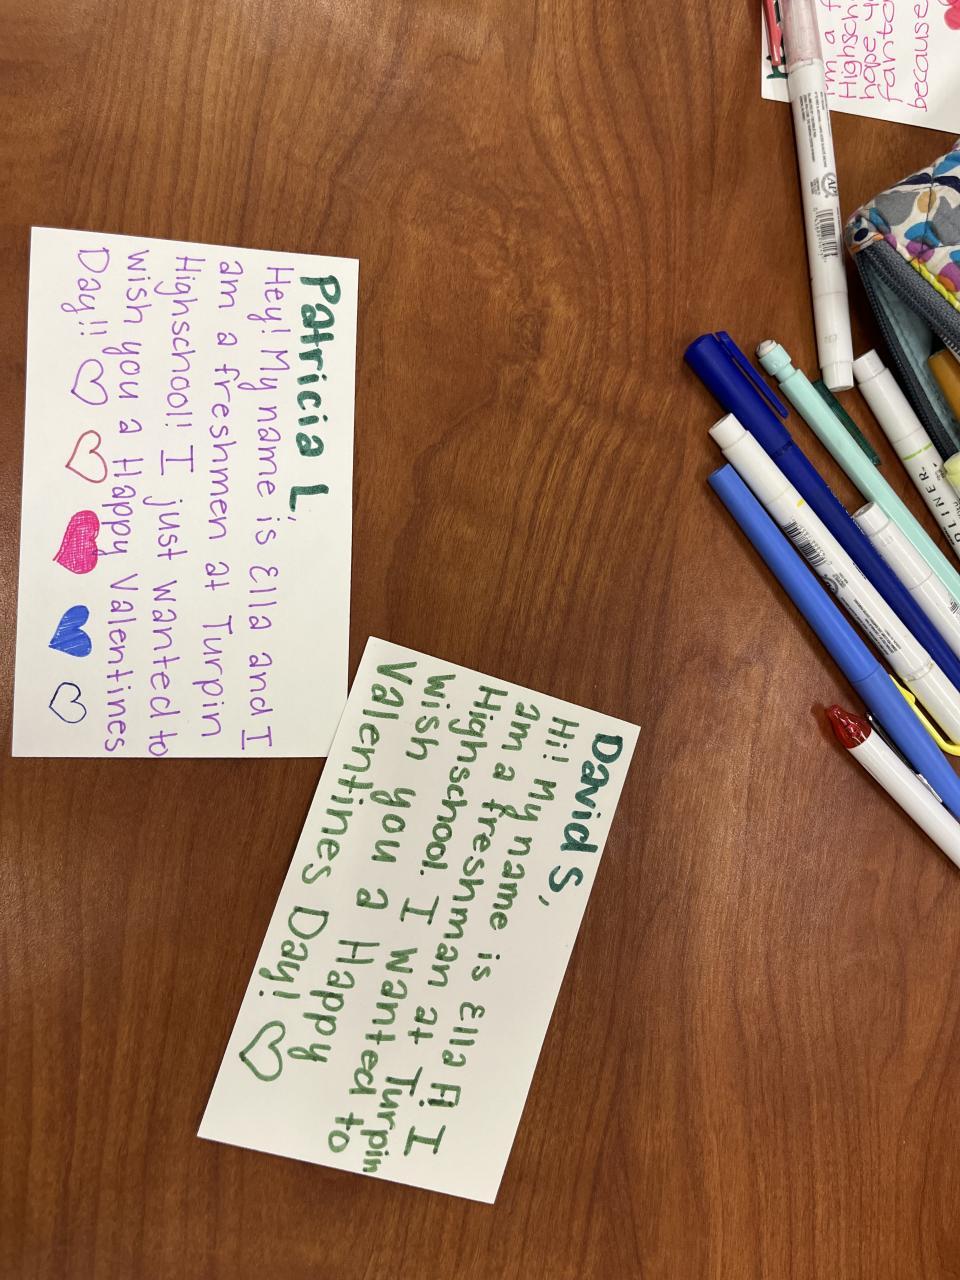 Patricia L,
Hey! My name is Ella and I
am a freshmen at Turpin
Highschool! I just wanted to
wish you a Happy Valentines
Day!!
David S,
Hi! My name is Ella F! I
am a freshman at Turpin
Highschool. I wanted to
wish you a Happy
Valentines Day!
I'm a f
Highsch
hope y
fanta
because
LINER
AP